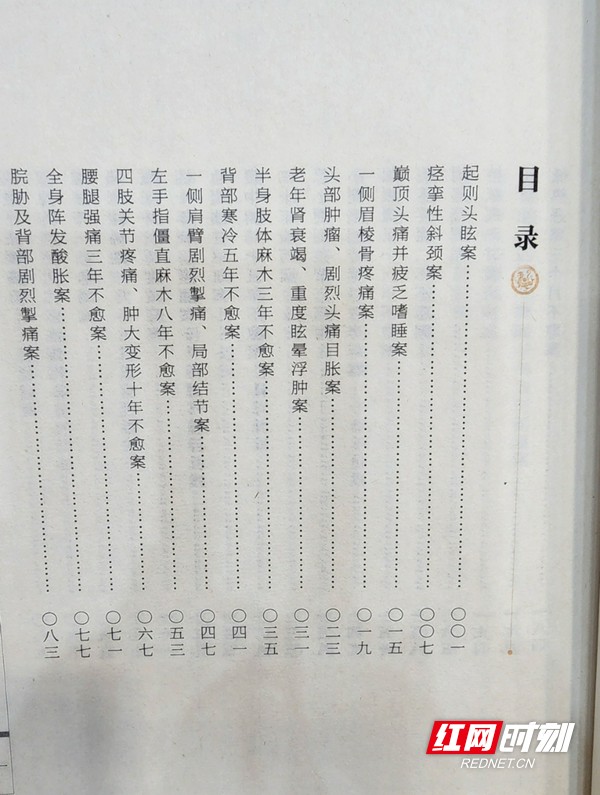 目录
起则头眩案……〇〇一
痉挛性斜颈案……〇〇七
巅顶头痛并疲乏嗜睡案……〇一五
一侧眉棱骨疼痛案……〇一九
头部肿瘤、剧烈头痛目胀案……〇二三
老年肾衰竭、重度眩晕浮肿案……〇三一
半身肢体麻木三年不愈案……〇三五
背部寒冷五年不愈案……〇四一
一侧肩臂剧烈掣痛、局部结节案……〇四七
左手指僵直麻木八年不愈案……〇五三
四肢关节疼痛、肿大变形十年不愈案……〇六七
腰腿强痛三年不愈案……〇七一
全身阵发酸胀案……〇七七
脘胁及背部剧烈掣痛案……〇八三
红网时刻
REDNET.CN